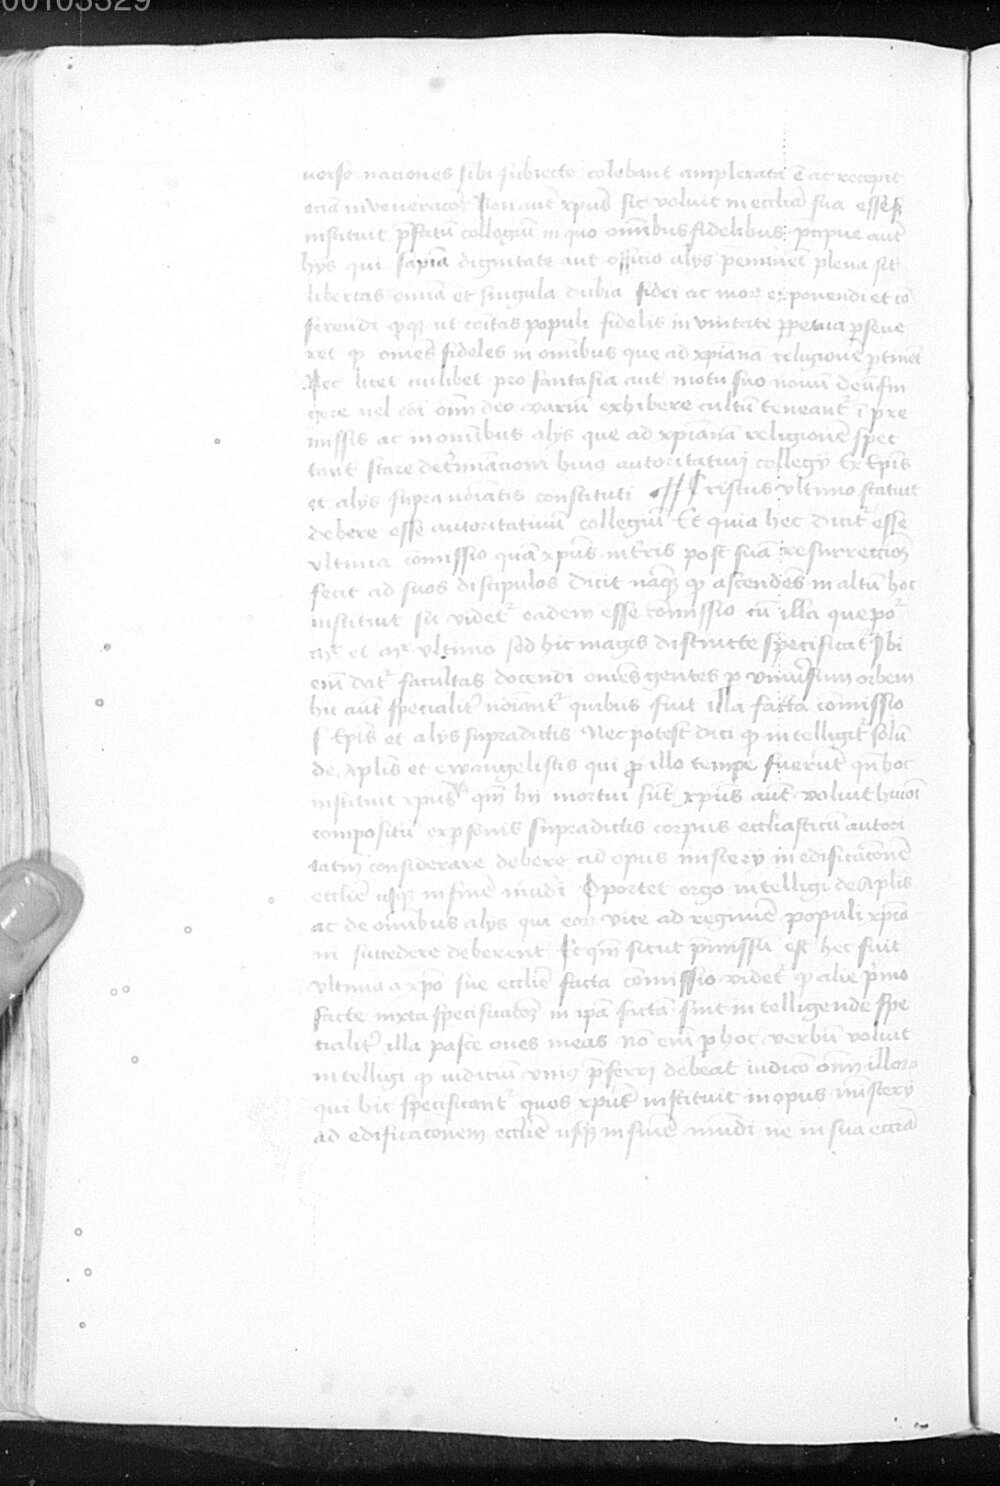 00103329
universe naciones sibi subiecte colebant amplexata ē ac recepit
eciā in veneracoēʒ Non aut̄ xpūs sic voluit in ecclīa sua esse s
instituit p̄fatū collegiū in quo om̄ibus fidelibus p̄cipue aut̄
hÿs qui sapīa dignitate aut officio alÿs plena sit
libertas om̄ia et singula dubia fidei ac moꝝ exponendi et cō
ferendi ut cōitas populi fidelis in vnitate ꝑpetua ꝑseue
ret qꝫ om̄es fideles in om̄ibus que ad xpianā religionē ꝑtinēt
Nec licet cuilibet pro fantasia aut motu suo nouū deū fin
gere vel om̄i deo variū exhibere cultū teneant᷑ ī pre
missis ac in om̄ibus alÿs que ad xpianā religionē spec
tant stare det̄minacioni huiꝰ autoritatiui collegÿ Ex Epīs
et alÿs supra noīatis constituti Cristus vltimo statuit
debere esse autoritatiuū collegiū Et quia hec dicit᷑ esse
vltima cōmissio quā xpūs in t̄ris post suā resurrecciōʒ
fecit ad suos discipulos dicit naꝫ qꝫ ascendēs in altū hoc
instituit videt᷑ eadem esse cōmissio cū illa que po᷑
et vltimo sed hic magis distincte specificat᷑ Ibi
em̄ dat᷑ facultas docendi om̄es gentes ꝑ vniu̓sum orbem
hic aut̄ specialit̓ noīant᷑ quibus fuit illa facta cōmissio
s Epīs et alÿs supradictis Nec potest dici qꝫ intelligit᷑ solū
de aplīs et ewangelistis qui ꝓ illo tempe fuerūt qn̄ hoc
instituit xpūs qm̄ hii mortui sūt xpūs aut̄ voluit huiōi
compositū ex ꝑsonis supradictis corpus ecclīasticū autori
tatiuū considerare debere ad opus misterÿ in edificacōnē
ecclīe usqꝫ in finē mūdi Oportet ergo intelligi de aplīs
ac de om̄ibus alÿs qui eoꝝ vice ad regimē populi xpīa
ni succedere deberent Et qm̄ sicut p̄missū est hec fuit
vltima a xpo sue ecclīe facta cōmissio videt᷑ qꝫ alie p̓mo
facte iuxta specificacōeʒ in ip̄a factā sint intelligende spe
cialit̓ illa pasce oues meas nō em̄ ꝑ hoc verbū voluit
intelligi qꝫ iudiciū vniꝰ p̄ferri debeat iudicio om̄i illoꝝ
qui hic specificant᷑ quos xpūs instituit in opus misterÿ
ad edificacōnem ecclīe usqꝫ in finē mūdi ne in sua ecclīa